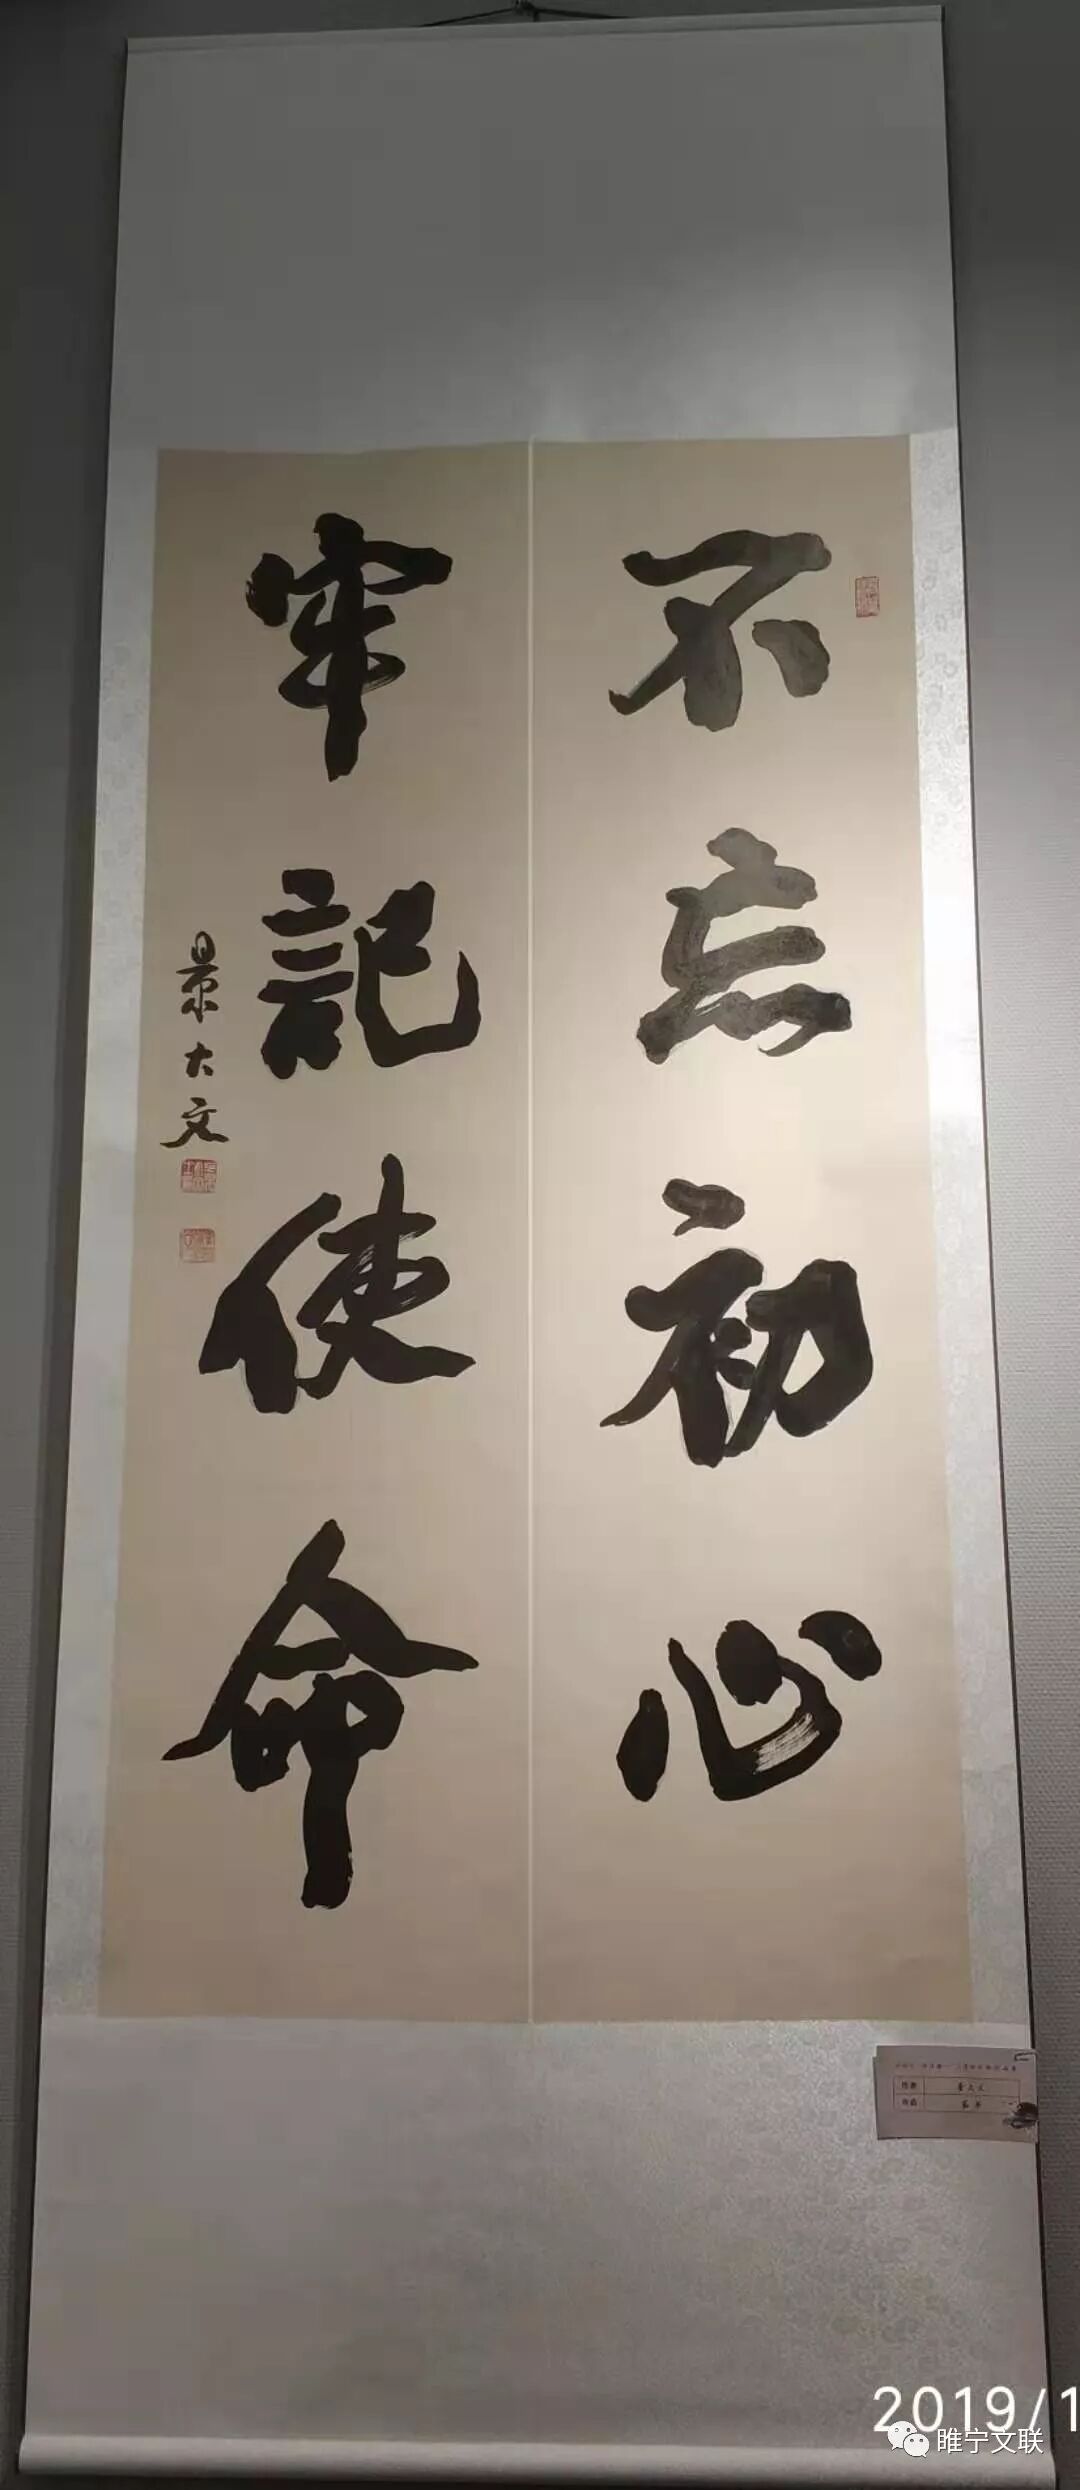 不忘初心
牢記使命
景大文
2019/1
睢宁文联